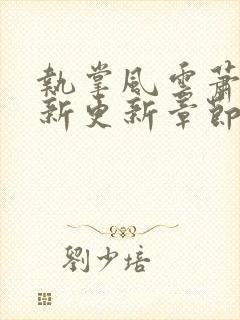 執掌風雲蕭
新更新章節
劉少培